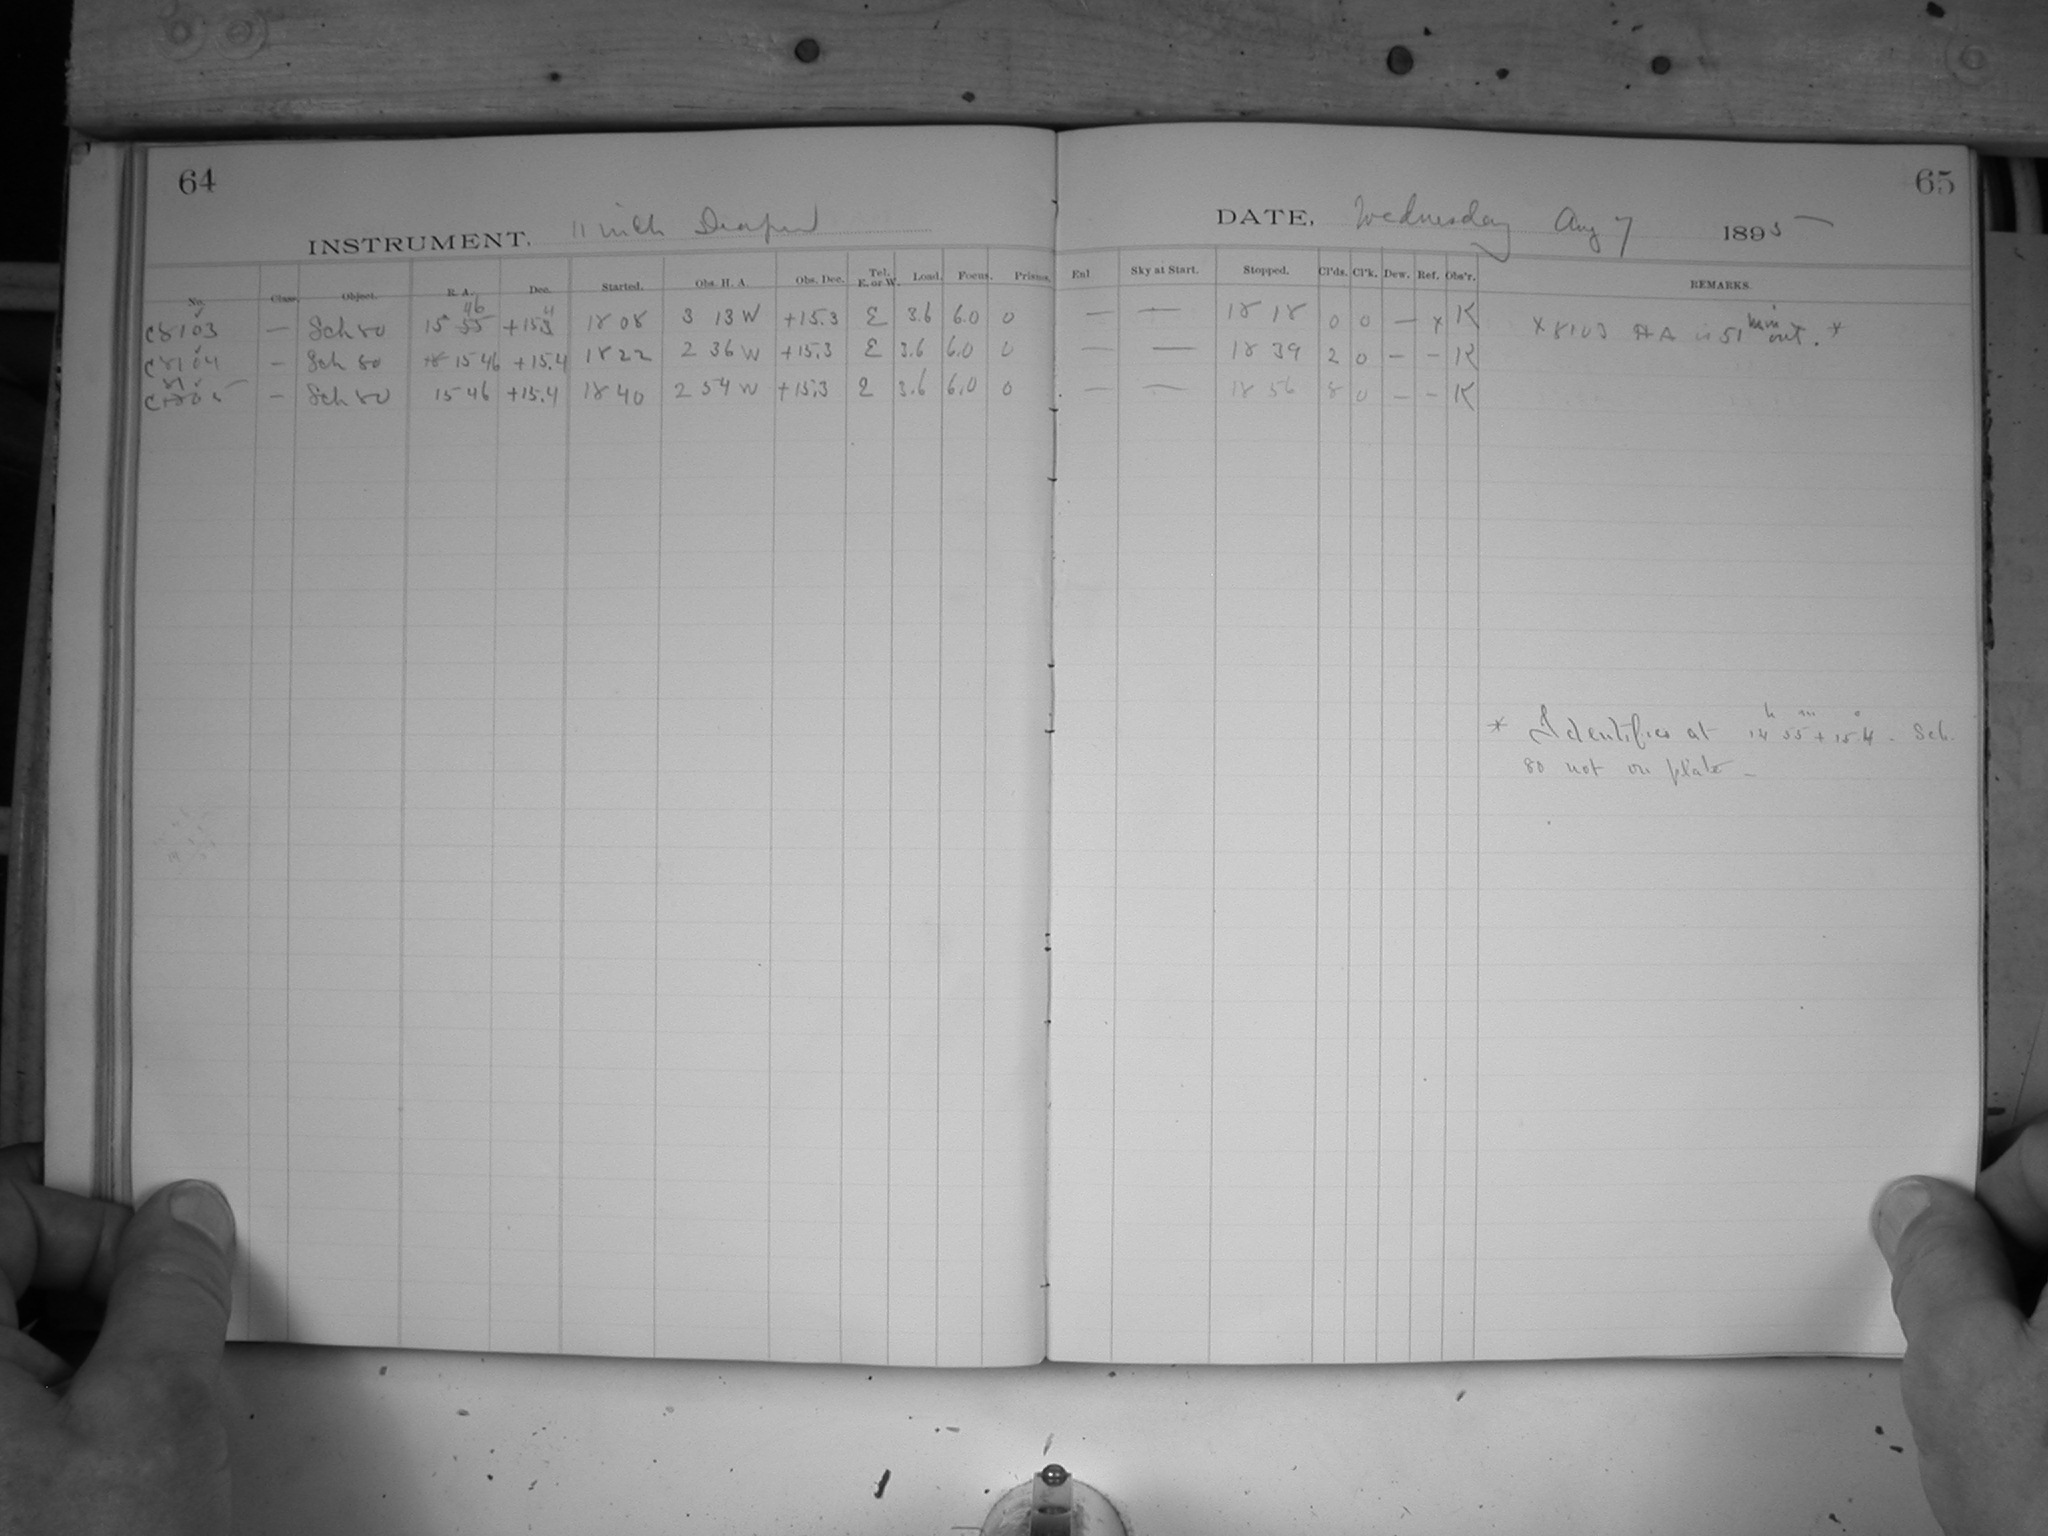 64
65
INSTRUMENT, 11 inch Draper
DATE, Wednesday Aug 7 1895
No. Class. Object. R. A. Dec. Started. Obs. H. A. Obs. Dec. Tel. E. or W. Load. Focus. Prisms. Enl Sky at Start. Stopped. Cl'ds. Cl'k. Dew. Ref. Obs'r. REMARKS.
46 4
C8103 — Sch 80 15 55 +15.3 18 08 3 13 W +15.3 E 3.6 6.0 0 — — 18 18 0 0 — x K x 8103 HA is 51 min out. *
C8104 — Sch 80 18 15 46 +15.4 18 22 2 36 W +15.3 E 3.6 6.0 0 — — 18 39 2 0 — — K
C8105 — Sch 80 15 46 +15.4 18 40 2 54 W +15.3 E 3.6 6.0 0 — — 18 56 8 0 — — K
* Identifies at 14h 55m + 15°.4 - Sch.
80 not on plate -